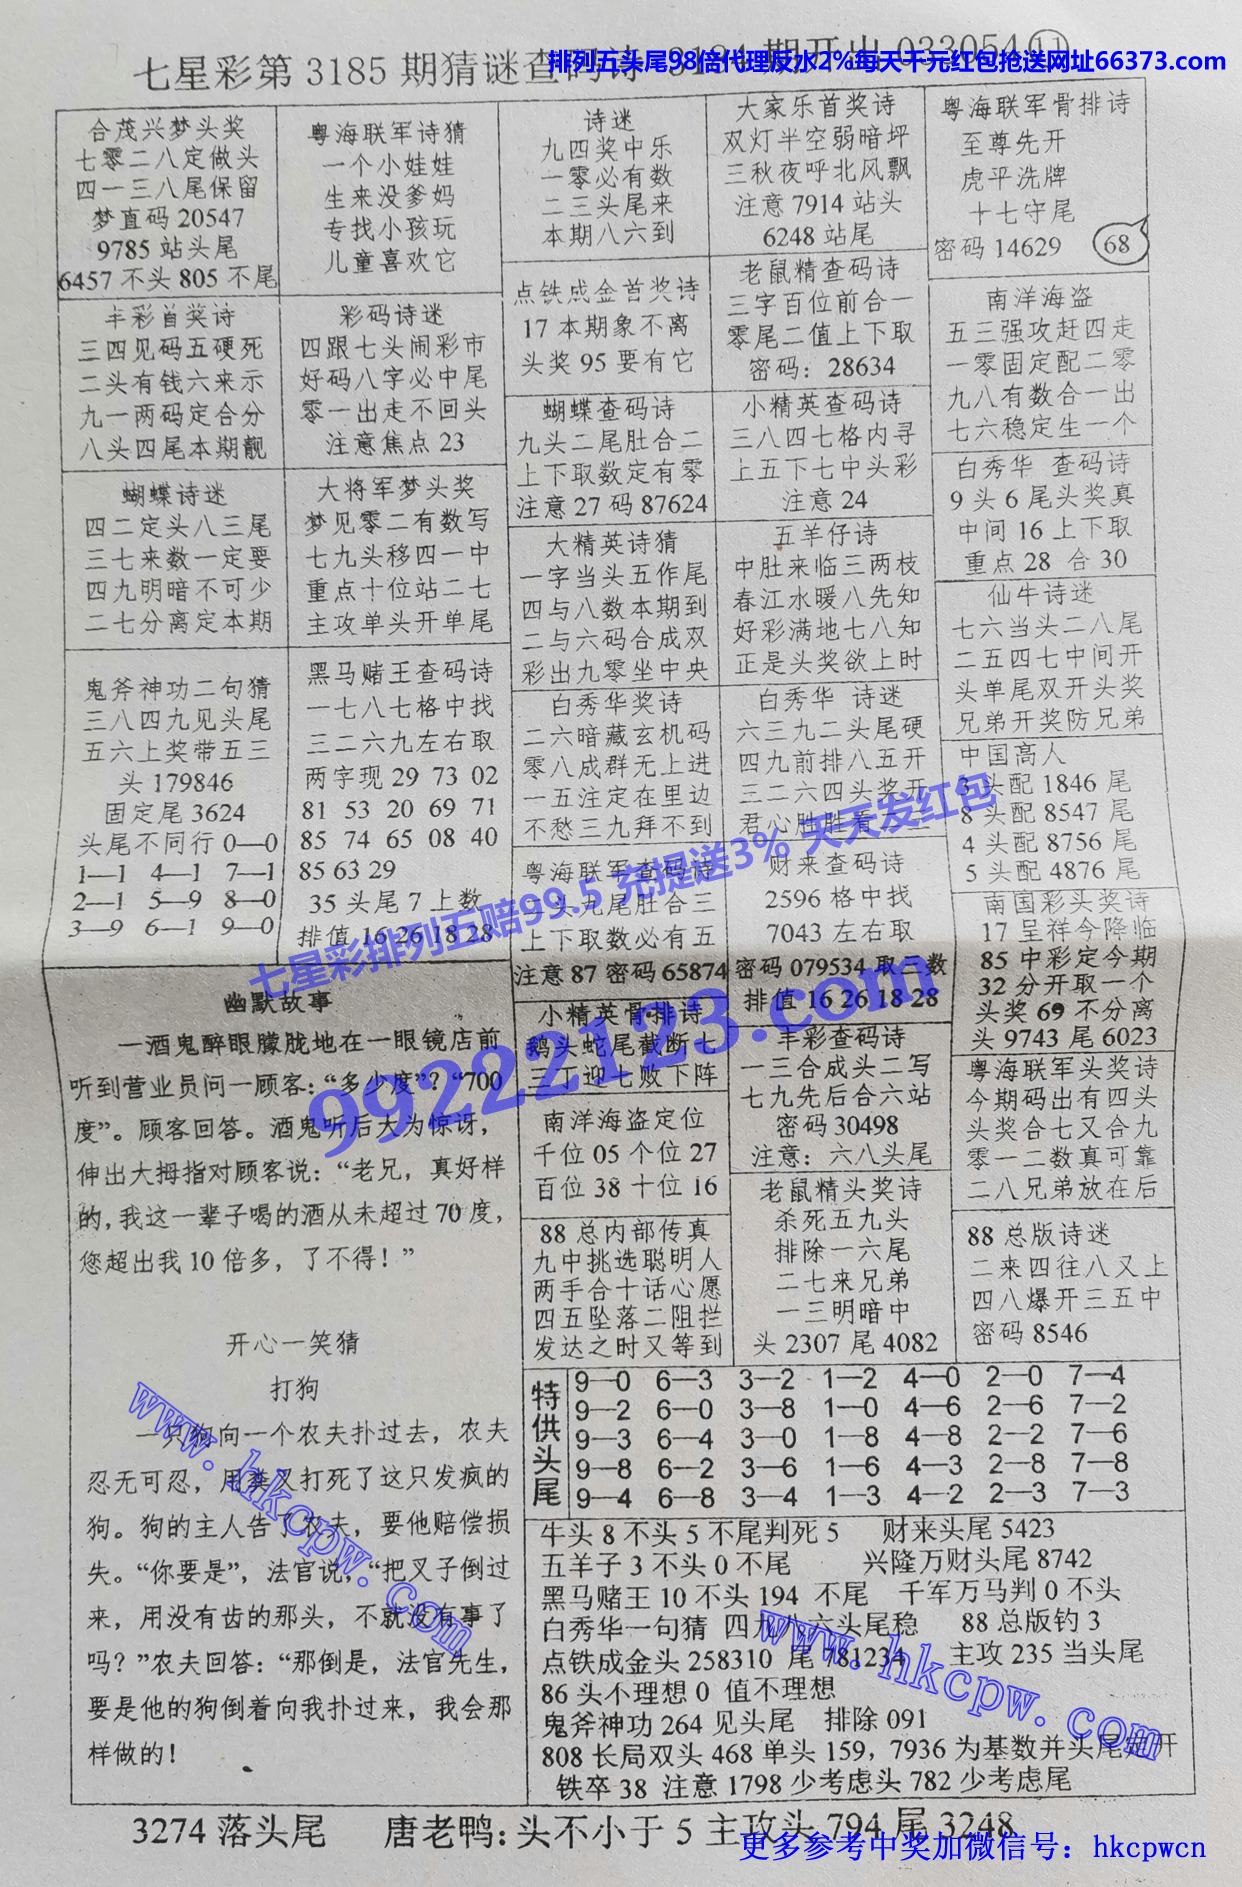 七星彩第3185期猜谜查码诗 3184期开出033054⑪
排列五头尾98倍代理反水2%每天千元红包抢送网址66373.com
合茂兴梦头奖
七零二八定做头
四一三八尾保留
梦直码20547
9785站头尾
6457不头805不尾
粤海联军诗猜
一个小娃娃
生来没爹妈
专找小孩玩
儿童喜欢它
诗迷
九四奖中乐
一零必有数
二三头尾来
本期八六到
大家乐首奖诗
双灯半空弱暗坪
三秋夜呼北风飘
注意7914站头
6248站尾
粤海联军骨排诗
至尊先开
虎平洗牌
十七守尾
密码14629
68
丰彩首奖诗
三四见码五硬死
二头有钱六来示
九一两码定合分
八头四尾本期靓
彩码诗迷
四跟七头闹彩市
好码八字必中尾
零一出走不回头
注意焦点23
点铁成金首奖诗
17本期象不离
头奖95要有它
老鼠精查码诗
三字百位前合一
零尾二值上下取
密码：28634
南洋海盗
五三强攻赶四走
一零固定配二零
九八有数合一出
七六稳定生一个
蝴蝶查码诗
九头二尾肚合二
上下取数定有零
注意27码87624
小精英查码诗
三八四七格内寻
上五下七中头彩
注意24
白秀华 查码诗
9头6尾头奖真
中间16上下取
重点28 合30
蝴蝶诗迷
四二定头八三尾
三七来数一定要
四九明暗不可少
二七分离定本期
大将军梦头奖
梦见零二有数写
七九头移四一中
重点十位站二七
主攻单头开单尾
大精英诗猜
一字当头五作尾
四与八数本期到
二与六码合成双
彩出九零坐中央
五羊仔诗
中肚来临三两枝
春江水暖八先知
好彩满地七八知
正是头奖欲上时
仙牛诗迷
七六当头二八尾
二五四七中间开
头单尾双开头奖
兄弟开奖防兄弟
鬼斧神功二句猜
三八四九见头尾
五六上奖带五三
头179846
固定尾3624
头尾不同行0—0
1—1 4—1 7—1
2—1 5—9 8—0
3—9 6—1 9—0
黑马赌王查码诗
一七八七格中找
三二六九左右取
两字现29 73 02
81 53 20 69 71
85 74 65 08 40
85 63 29
35头尾7上数
排值16 26 18 28
白秀华奖诗
二六暗藏玄机码
零八成群无上进
一五注定在里边
不愁三九拜不到
白秀华 诗迷
六三九二头尾硬
四九前排八五开
三二六四头奖开
君心胜胜看
中国高人
3头配1846尾
8头配8547尾
4头配8756尾
5头配4876尾
粤海联军查码诗
二头九尾肚合三
上下取数必有五
注意87密码65874
财来查码诗
2596格中找
7043左右取
密码079534取三数
排值16 26 18 28
南国彩头奖诗
17呈祥今降临
85中彩定今期
32分开取一个
头奖69不分离
头9743尾6023
七星彩排列五赔99.5 充提送3% 天天发红包
99222123.com
幽默故事
一酒鬼醉眼朦胧地在一眼镜店前
听到营业员问一顾客：“多少度”？“700
度”。顾客回答。酒鬼听后大为惊讶，
伸出大拇指对顾客说：“老兄，真好样
的，我这一辈子喝的酒从未超过70度，
您超出我10倍多，了不得！”
开心一笑猜
打狗
一只狗向一个农夫扑过去，农夫
忍无可忍，用粪叉打死了这只发疯的
狗。狗的主人告了农夫，要他赔偿损
失。“你要是”，法官说，“把叉子倒过
来，用没有齿的那头，不就没有事了
吗？”农夫回答：“那倒是，法官先生，
要是他的狗倒着向我扑过来，我会那
样做的！
小精英骨排诗
鹅头蛇尾截断七
三丁迎七败下阵
丰彩查码诗
一三合成头二写
七九先后合六站
密码30498
注意：六八头尾
粤海联军头奖诗
今期码出有四头
头奖合七又合九
零一二数真可靠
二八兄弟放在后
南洋海盗定位
千位05个位27
百位38十位16
88总内部传真
九中挑选聪明人
两手合十话心愿
四五坠落二阻拦
发达之时又等到
老鼠精头奖诗
杀死五九头
排除一六尾
二七来兄弟
一三明暗中
头2307尾4082
88总版诗迷
二来四往八又上
四八爆开三五中
密码8546
特供头尾
9—0 6—3 3—2 1—2 4—0 2—0 7—4
9—2 6—0 3—8 1—0 4—6 2—6 7—2
9—3 6—4 3—0 1—8 4—8 2—2 7—6
9—8 6—2 3—6 1—6 4—3 2—8 7—8
9—4 6—8 3—4 1—3 4—2 2—3 7—3
牛头8不头5不尾判死5 财来头尾5423
五羊子3不头0不尾 兴隆万财头尾8742
黑马赌王10不头194 不尾 千军万马判0不头
白秀华一句猜 四九八六头尾稳 88总版钓3
点铁成金头258310 尾781234 主攻235当头尾
86头不理想0 值不理想
鬼斧神功264见头尾 排除091
808长局双头468单头159，7936为基数并头尾定开
铁卒38 注意1798少考虑头782少考虑尾
www.hkcpw.com
www.hkcpw.com
3274落头尾 唐老鸭：头不小于5主攻头794尾3248
更多参考中奖加微信号：hkcpwcn